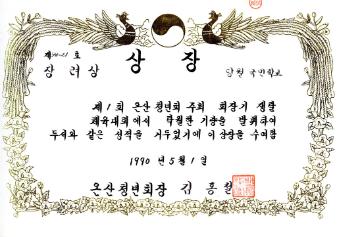 상장
장려상
제1회 온산청년회 주최 회장기 쟁탈
체육대회에서 탁월한 기량을 발휘하여
두서와 같은 성적을 거두었기에 이 상장을 수여함
1990 년 5 월 1 일
온산청년회장 김 흥